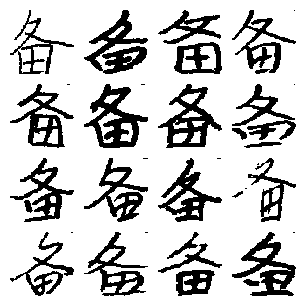 备备备备
备备备备
备备备备
备备备备